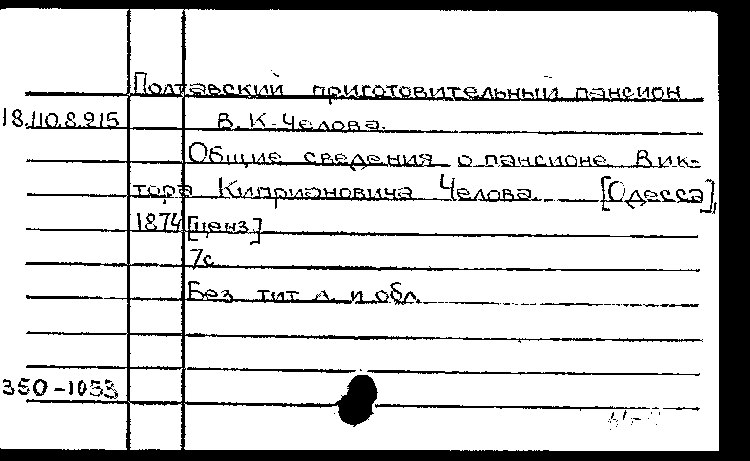 Полтавский приготовительный пансион
18.110.8.215 В. К. Челова.
Общие сведения о пансионе Вик-
тора Киприановича Челова [Одесса],
1874 [ценз]
7с
Без тит л. и обл.
350-1033